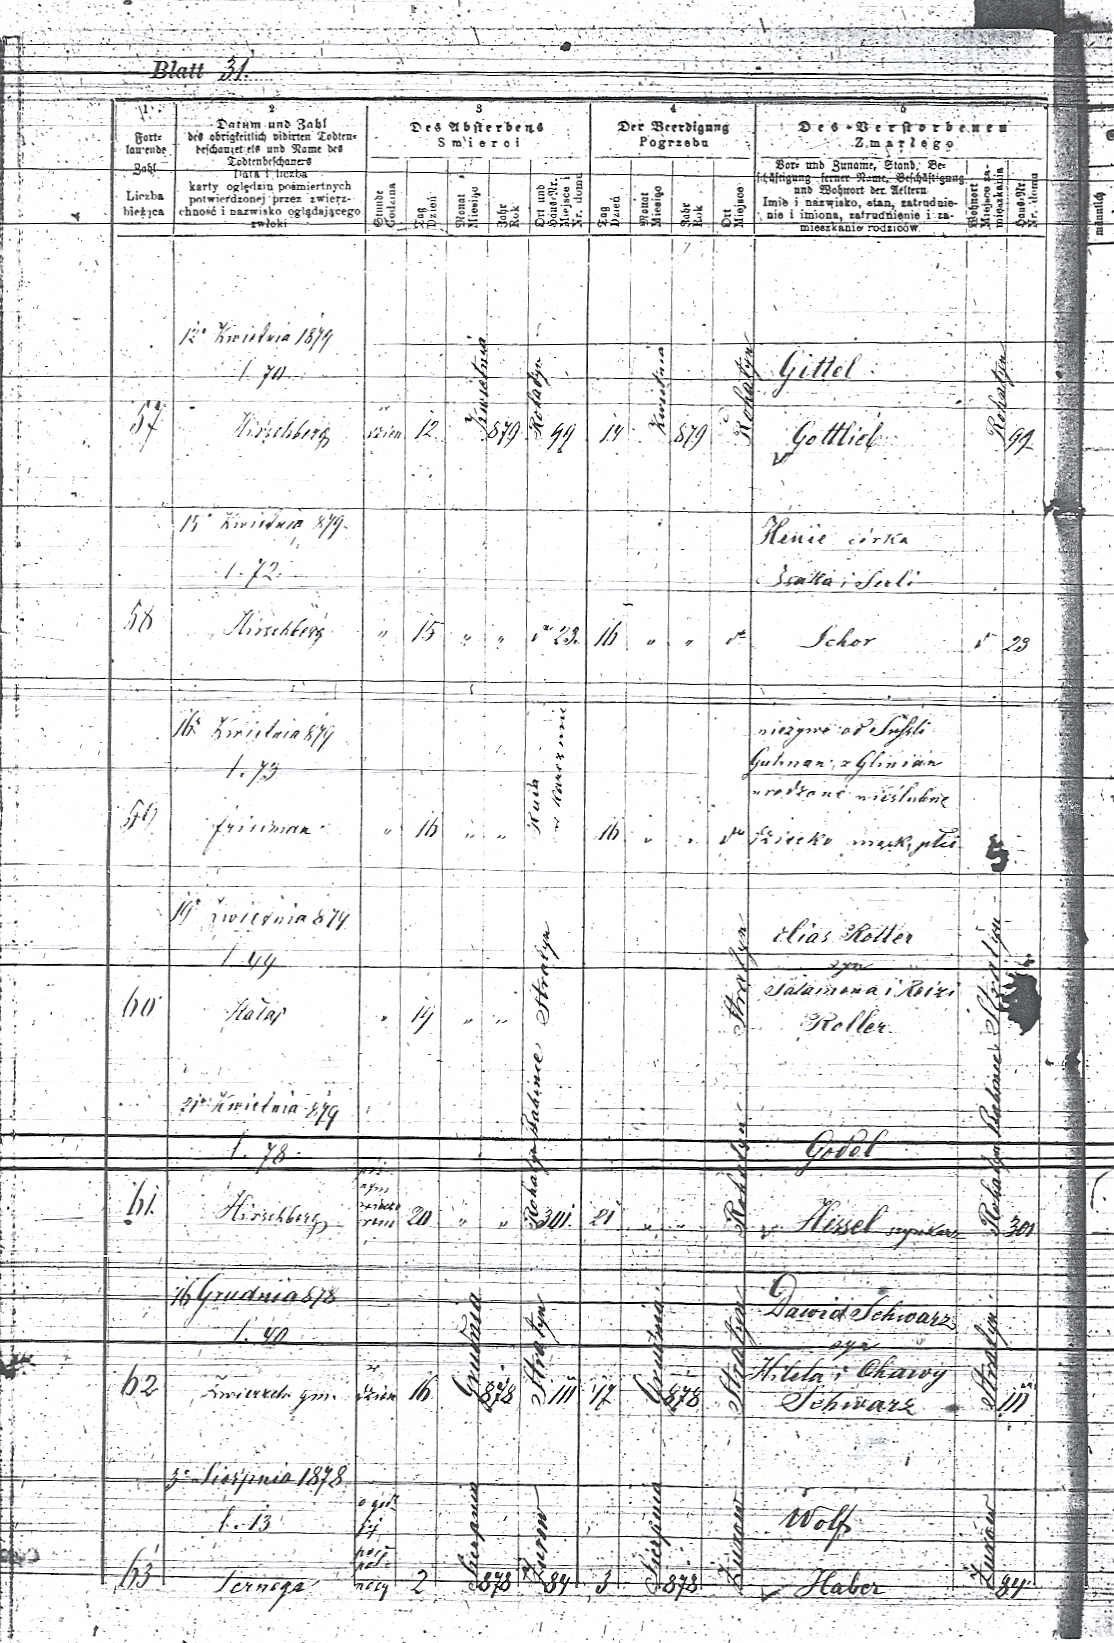 Blatt 31.
1 2 3 4 5
Fortlaufende Zahl
Liczba bieżąca
Datum und Zahl
des obrigkeitlich vidirten Todten-
beschauzettels und Name des
Todtenbeschauers
Data i liczba
karty oględzin pośmiertnych
potwierdzonej przez zwierz-
chność i nazwisko oglądającego
zwłoki
Des Absterbens
Śmierci
Stunde Godzina
Tag Dzień
Monat Miesiąc
Jahr Rok
Ort und Haus-Nr. Miejsce i Nr. domu
Der Beerdigung
Pogrzebu
Tag Dzień
Monat Miesiąc
Jahr Rok
Ort Miejsce
Des Verstorbenen
Zmarłego
Vor- und Zuname, Stand, Be-
schäftigung, ferner Name, Beschäftigung
und Wohnort der Aeltern
Imię i nazwisko, stan, zatrudnie-
nie i imiona, zatrudnienie i za-
mieszkanie rodziców.
Wohnort Miejsce zamieszkania
Haus-Nr Nr. domu
männlich
12 Kwietnia 1879
l. 70
Gittel
57 Hirschberg dzień 12 Kwietnia 879 Rohatyn 99 14 Kwietnia 879 Rohatyn Gottlieb Rohatyn 99
15 Kwietnia 879
l. 72
Henie córka
Isaka i Serli
58 Hirschberg " 15 " " dto 23 16 " " dto Schor dto 23
16 Kwietnia 879
l. 73
nieżywe od
Gutman z Glinian
urodzone nieślubne
59 Friedman " 16 " " Ruda w karczmie 16 " " dto dziecko męsk. płci
19 Kwietnia 879
l. 49
Elias Rotter
syn
Salamona i Reizi
60 " 19 " " Stratyn Stratyn Rotter Stratyn
21 Kwietnia 879
l. 78
Godel
61 Hirschberg 20 " " Rohatyn Babince 301 21 " " Rohatyn Hissel Rohatyn Babince 301
16 Grudnia 878
l. 40
Dawid Schwarz
syn
Hilela i Chawy
62 Zwierzch. gm. dzień 16 Grudnia 878 Stratyn 111 17 Grudnia 878 Stratyn Schwarz Stratyn 111
3 Sierpnia 1878
l. 13
Wolf
63 Ternega 2 Sierpnia 878 Żurow 84 3 Sierpnia 878 Żurow Haber Żurow 84